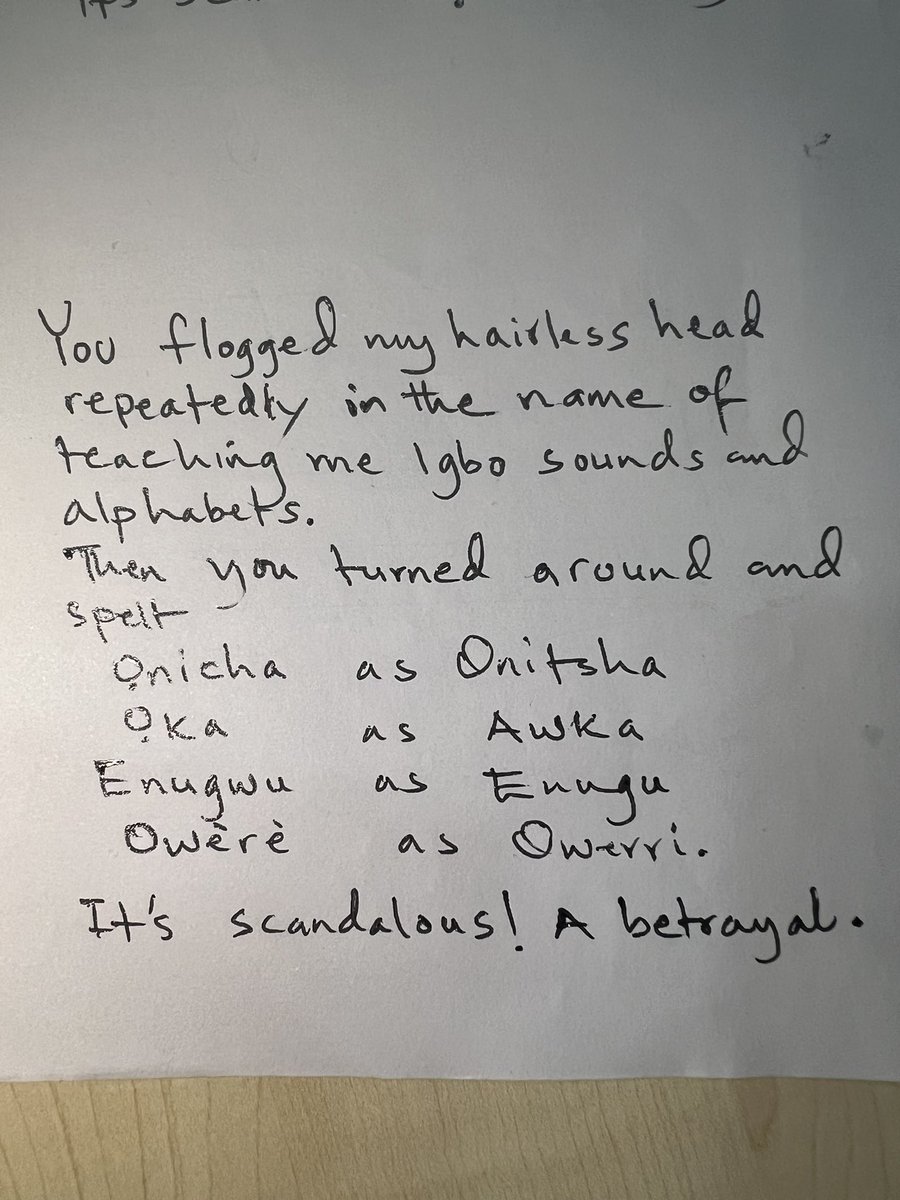 You flogged my hairless head
repeatedly in the name of
teaching me Igbo sounds and
alphabets.
Then you turned around and
spelt
Ọnicha as Onitsha
Ọka as Awka
Enugwu as Enugu
Owèrè as Owerri.
It's scandalous! A betrayal.